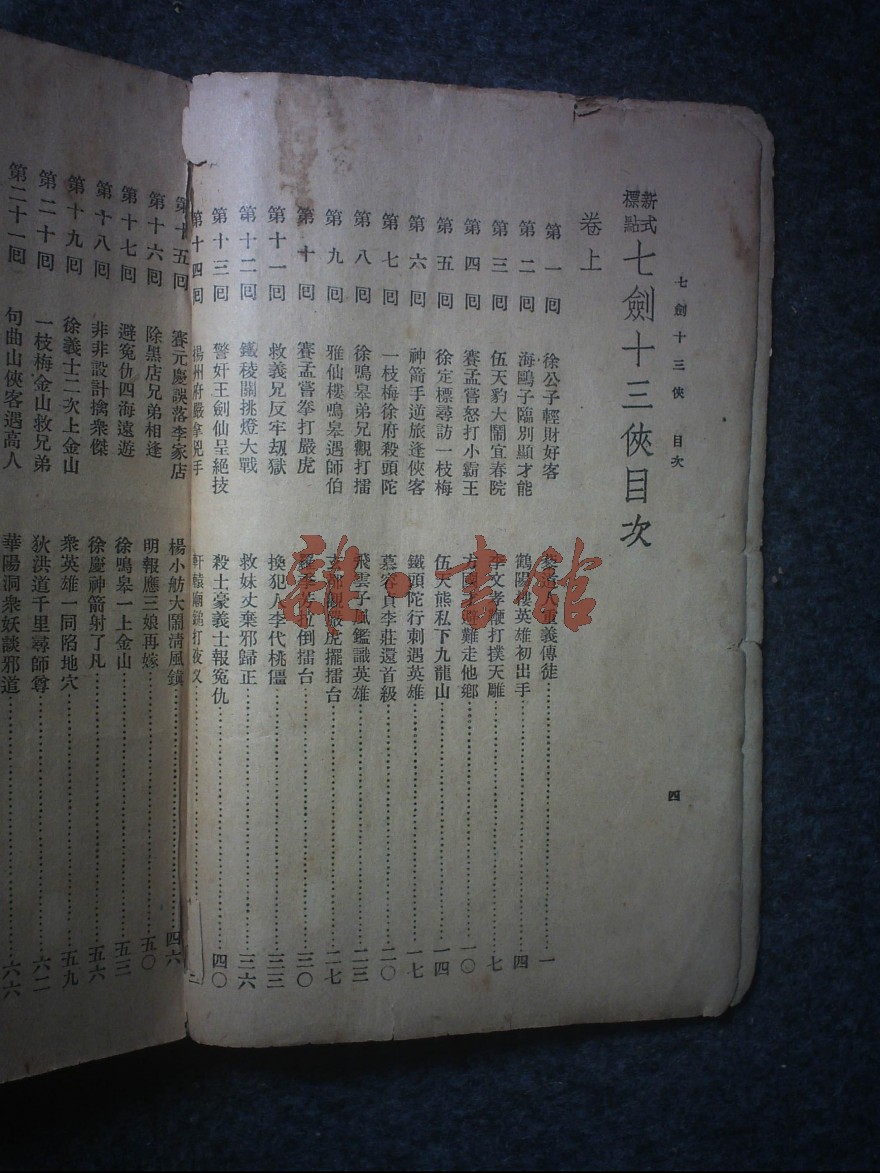 七劍十三俠 目次
四
新式標點 七劍十三俠目次
卷上
第一回 徐公子輕財好客 道人重義傳徒 一
第二回 海鷗子臨別顯才能 鶴陽樓英雄初出手 四
第三回 伍天豹大鬧宜春院 李文孝鞭打撲天雕 七
第四回 賽孟嘗怒打小霸王 方國 難走他鄉 一〇
第五回 徐定標尋訪一枝梅 伍天熊私下九龍山 一四
第六回 神箭手逆旅逢俠客 鐵頭陀行刺遇英雄 一七
第七回 一枝梅徐府殺頭陀 慕容貞李莊還首級 二〇
第八回 徐鳴皋弟兄觀打擂 飛雲子風鑑識英雄 二三
第九回 雅仙樓鳴皋遇師伯 玄 觀嚴虎擺擂台 二七
第十回 賽孟嘗拳打嚴虎 羅 拉倒擂台 三〇
第十一回 救義兄反牢劫獄 換犯人李代桃僵 三三
第十二回 鐵稜關挑燈大戰 救妹丈棄邪歸正 三六
第十三回 警奸王劍仙呈絕技 殺土豪義士報冤仇 四〇
第十四回 揚州府嚴拿兇手 軒轅廟鎚打夜叉
第十五回 賽元慶誤落李家店 楊小舫大鬧清風鎮 四六
第十六回 除黑店兄弟相逢 明報應三娘再嫁 五〇
第十七回 避冤仇四海遠遊 徐鳴皋一上金山 五三
第十八回 非非設計擒眾傑 徐慶神箭射了凡 五六
第十九回 徐義士二次上金山 眾英雄一同陷地穴 五九
第二十回 一枝梅金山救兄弟 狄洪道千里尋師尊 六二
第二十一回 句曲山俠客遇高人 華陽洞眾妖談邪道 六六
雜·書館